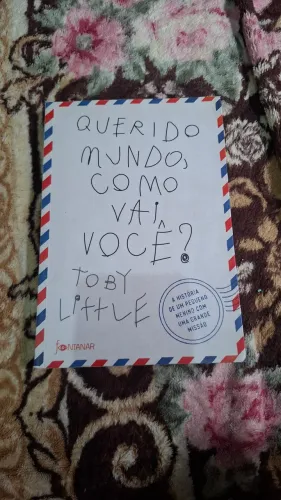 QUERIDO
MUNDO,
COMO
VAI
VOCÊ?
TOBY
LITTLE
A HISTÓRIA
DE UM PEQUENO
MENINO COM
UMA GRANDE
MISSÃO
FONTANAR